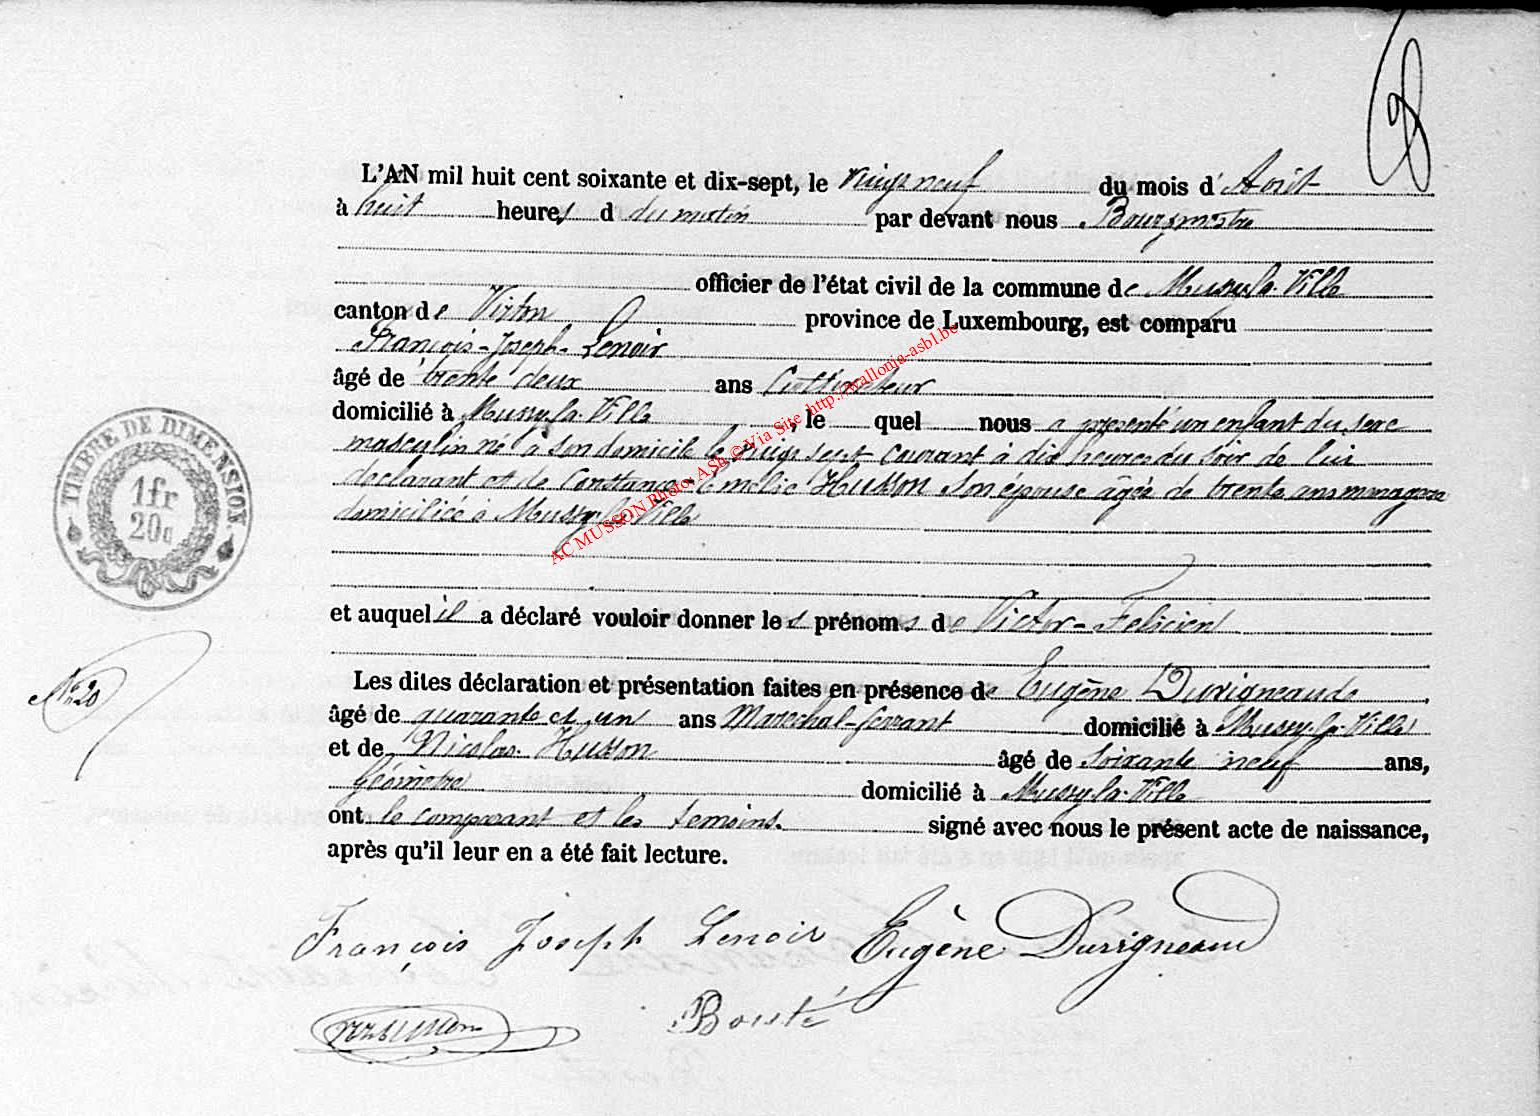 8
L'AN mil huit cent soixante et dix-sept, le vingt neuf du mois d' Août
à huit heures d du matin par devant nous Bourgmestre
officier de l'état civil de la commune de Mussy-la-Ville
canton de Virton province de Luxembourg, est comparu
François-Joseph-Lenoir
âgé de trente deux ans Cultivateur
domicilié à Mussy-la-Ville, le quel nous a présenté un enfant du sexe
masculin né à son domicile le vingt sept courant à dix heures du soir de lui
déclarant et de Constance-Emélie Husson son épouse âgée de trente ans ménagère
domiciliée à Mussy-la-Ville
et auquel il a déclaré vouloir donner les prénoms de Victor-Felicien
Les dites déclaration et présentation faites en présence de Eugène Duvigneaude
âgé de quarante et un ans Marechal-ferrant domicilié à Mussy-la-Ville
et de Nicolas Husson âgé de soixante neuf ans,
Géomètre domicilié à Mussy-la-Ville
ont le comparant et les temoins. signé avec nous le présent acte de naissance,
après qu'il leur en a été fait lecture.
François Joseph Lenoir Eugène Duvigneaud
Husson Bouté
TIMBRE DE DIMENSION
1 fr
20 c
N° 20
AC MUSSON Photo: ASh © Via Site http://wallonia-asbl.be